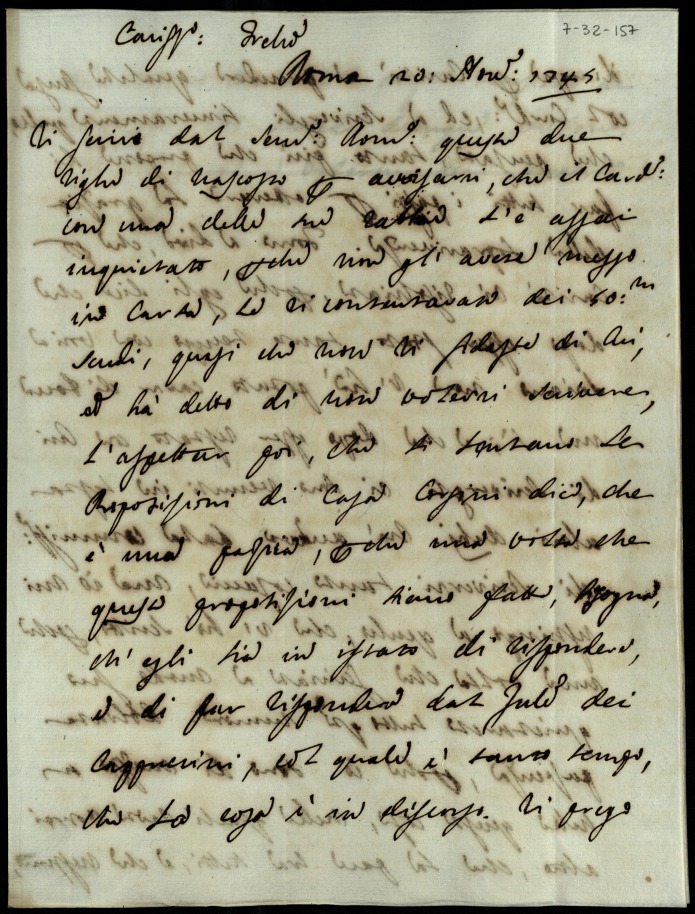 7-32-157
Cariss.º: Frełło
Roma 20: Nov.e: 1745
Vi scrivo dal Sem.o: Rom.o: queste due
righe di nascosto p avvisarvi, che il Card.e:
con una delle sue s'è assai
inquietato, pchè non gl'avete messo
in carta, se vi contentavate dei 50:m
scudi, quasi che non vi fidaste di lui,
ed hà detto di non volervi scrivere,
l'aspettar poi, che si sentano le
Proposizioni di Casa Corsini dice, che
è una pazzia, pchè una volta che
queste proposizioni siano fatte, bisogna,
ch'egli sia in istato di rispondere,
e di far rispondere dal
Cappuccini, col quale è tanto tempo,
che la cosa è in discorso. Vi prego